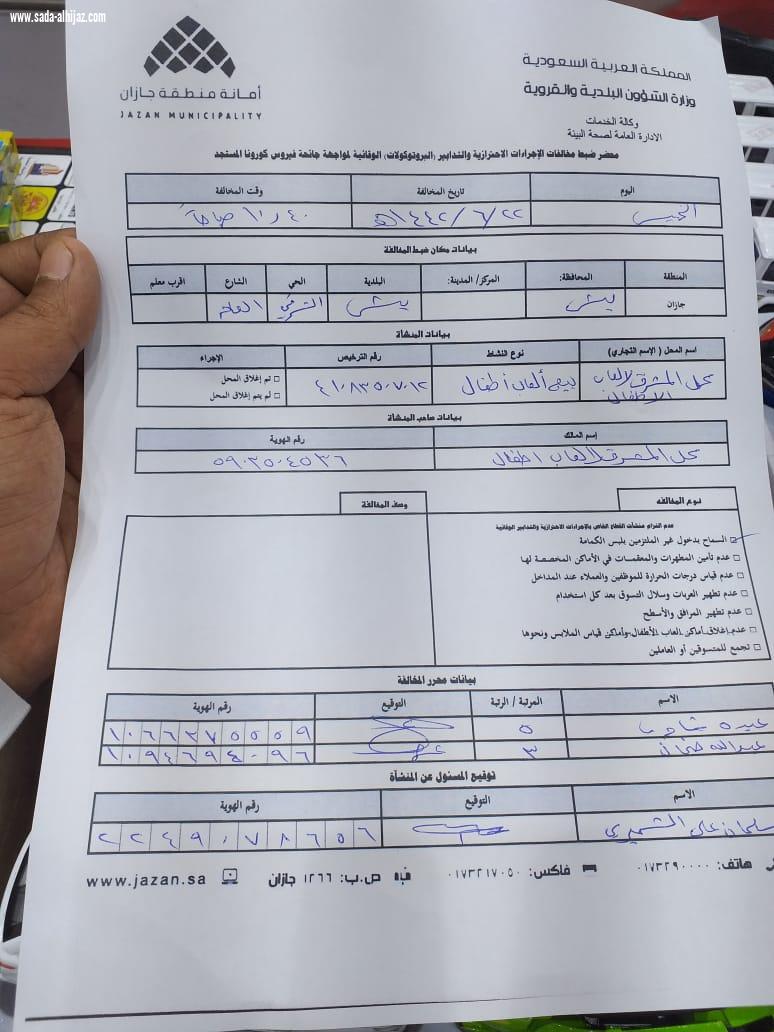 www.sada-alhijaz.com
أمانة منطقة جازان
JAZAN MUNICIPALITY
المملكة العربية السعودية
وزارة الشؤون البلدية والقروية
وكالة الخدمات
الادارة العامة لصحة البيئة
محضر ضبط مخالفات الإجراءات الاحترازية والتدابير (البروتوكولات) الوقائية لمواجهة جائحة فيروس كورونا المستجد
اليوم تاريخ المخالفة وقت المخالفة
الخميس ١٤٤٢/٦/٢٢هـ ١٠٫٤٠ صباحاً
بيانات مكان ضبط المخالفة
المنطقة المحافظة: المركز/ المدينة: البلدية الحي الشارع اقرب معلم
جازان بيش بيش الشرقي العام
بيانات المنشأة
اسم المحل ( الإسم التجاري) نوع النشاط رقم الترخيص الإجراء
محل المشرق لالعاب الاطفال بيع ألعاب أطفال ٤١٠٨٣٥٠٧٠١٢ □ تم إغلاق المحل
□ لم يتم إغلاق المحل
بيانات صاحب المنشأة
إسم المالك رقم الهوية
محل المشرق لالعاب اطفال ٥٩٠٣٥٠٤٥٣٦
نوع المخالفه وصف المخالفة
عدم التزام منشآت القطاع الخاص بالإجراءات الاحترازية والتدابير الوقائية
السماح بدخول غير الملتزمين بلبس الكمامة
□ عدم تأمين المطهرات والمعقمات في الأماكن المخصصة لها
□ عدم قياس درجات الحرارة للموظفين والعملاء عند المداخل
□ عدم تطهير العربات وسلال التسوق بعد كل استخدام
□ عدم تطهير المرافق والأسطح
□ عدم إغلاق أماكن العاب الأطفال وأماكن قياس الملابس ونحوها
□ تجمع للمتسوقين أو العاملين
بيانات محرر المخالفة
الاسم المرتبة / الرتبة التوقيع رقم الهوية
عبده ٥ ١٠٦٦٣٧٥٥٥٩
عبدالله ٣ ١٠٩٤٦٩٤٠٩٦
توقيع المسئول عن المنشأة
الاسم التوقيع رقم الهوية
سلمان علي الشميري ٢٢٤٩٠٧٨٦٥٦
هاتف: ٠١٧٣٢٩٠٠٠٠ فاكس: ٠١٧٣٢١٧٠٥٠ ص.ب: ١٢٦٦ جازان www.jazan.sa